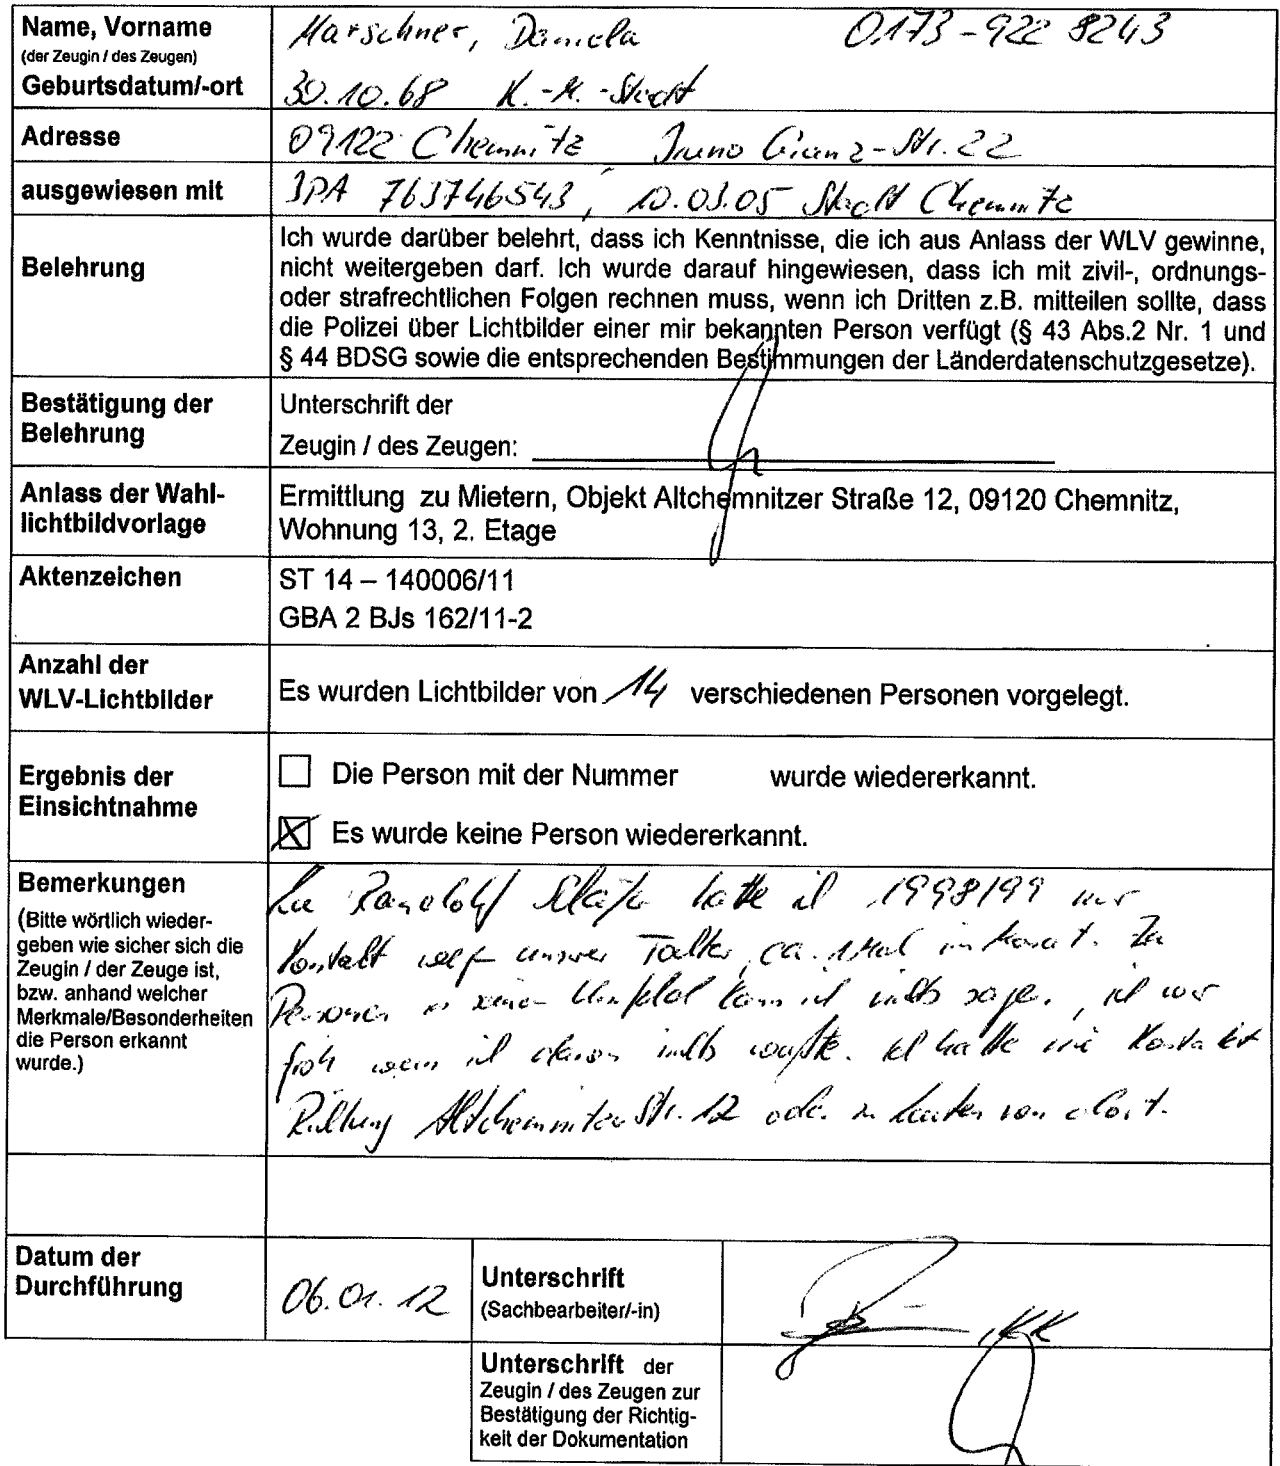 Name, Vorname
(der Zeugin / des Zeugen)
Geburtsdatum/-ort
Marschner, Daniela 0173-922 8243
30.10.68 K.-M.-Stadt
Adresse
09122 Chemnitz Granz-Str. 22
ausgewiesen mit
BPA 763746543, 10.03.05 Stadt Chemnitz
Belehrung
Ich wurde darüber belehrt, dass ich Kenntnisse, die ich aus Anlass der WLV gewinne,
nicht weitergeben darf. Ich wurde darauf hingewiesen, dass ich mit zivil-, ordnungs-
oder strafrechtlichen Folgen rechnen muss, wenn ich Dritten z.B. mitteilen sollte, dass
die Polizei über Lichtbilder einer mir bekannten Person verfügt (§ 43 Abs.2 Nr. 1 und
§ 44 BDSG sowie die entsprechenden Bestimmungen der Länderdatenschutzgesetze).
Bestätigung der
Belehrung
Unterschrift der
Zeugin / des Zeugen:
Anlass der Wahl-
lichtbildvorlage
Ermittlung zu Mietern, Objekt Altchemnitzer Straße 12, 09120 Chemnitz,
Wohnung 13, 2. Etage
Aktenzeichen
ST 14 – 140006/11
GBA 2 BJs 162/11-2
Anzahl der
WLV-Lichtbilder
Es wurden Lichtbilder von 14 verschiedenen Personen vorgelegt.
Ergebnis der
Einsichtnahme
Die Person mit der Nummer wurde wiedererkannt.
Es wurde keine Person wiedererkannt.
Bemerkungen
(Bitte wörtlich wieder-
geben wie sicher sich die
Zeugin / der Zeuge ist,
bzw. anhand welcher
Merkmale/Besonderheiten
die Person erkannt
wurde.)
Zu hatte ich 1998/99 nur
Kontakt unserer Tochter, ca. 1 Mal im Monat. Zu
Personen in seinem Umfeld kann ich nichts sagen, ich war
froh wenn ich davon nichts wußte. Ich hatte nie Kontakt
Richtung Altchemnitzer Str. 12 oder zu Leuten von dort.
Datum der
Durchführung
06.01.12
Unterschrift
(Sachbearbeiter/-in)
, KK
Unterschrift der
Zeugin / des Zeugen zur
Bestätigung der Richtig-
keit der Dokumentation